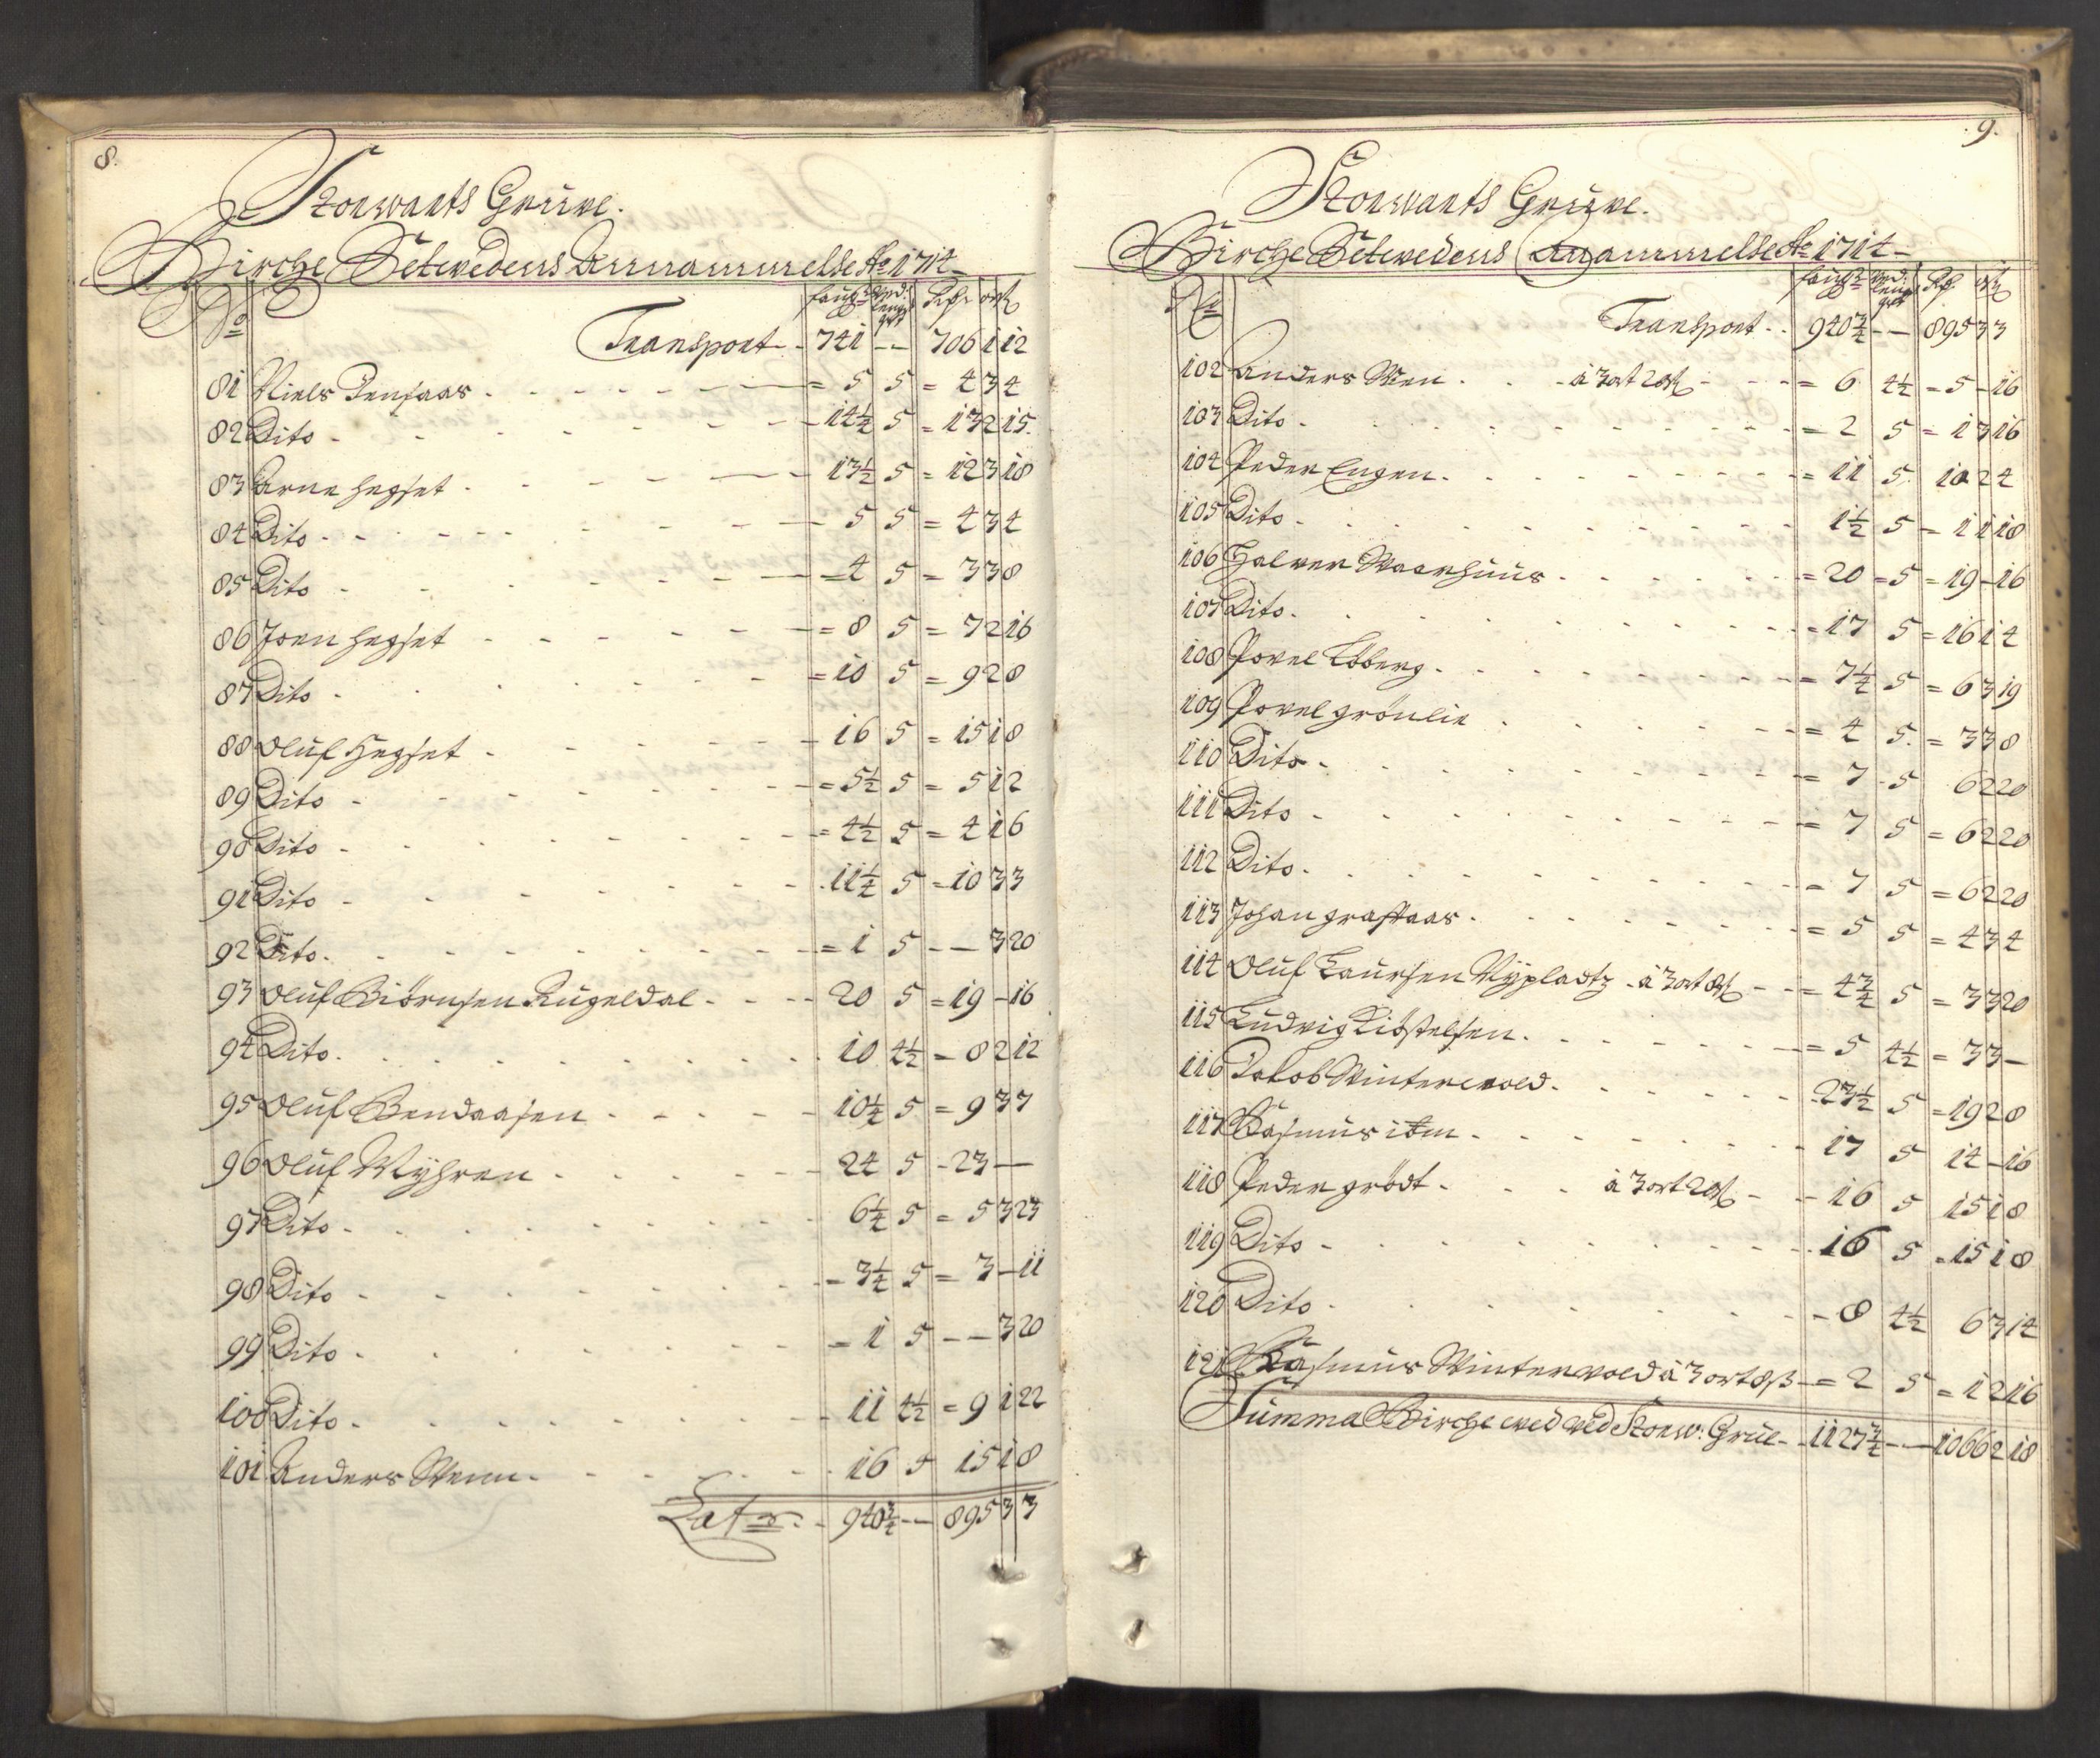 8.
Storwarts Grüve.
Bircke Setevedens Annammelse Ao 1714
No
faug Ved: lengt Rdr ort
Transport - 741 - - 706 1 12
81 Niels Jensaas - = 5 5 = 4 3 4
82 Dito - 14 1/4 5 = 13 2 15
83 Arne hegset - 13 1/2 5 = 12 3 18
84 Dito - 5 5 = 4 3 4
85 Dito - = 4 5 = 3 3 8
86 Joen hegset = 8 5 = 7 2 16
87 Dito - = 10 5 = 9 2 8
88 Oluf Hegset - 16 5 = 15 1 8
89 Dito - = 5 1/2 5 = 5 1 2
90 Dito - = 4 1/2 5 = 4 1 6
91 Dito - 11 1/4 5 = 10 3 3
92 Dito - = 1 5 - - 3 20
93 Oluf Biörnsen Rugeldal - 20 5 = 19 - 16
94 Dito - 10 4 1/2 = 8 2 12
95 Oluf Bendaasen - 10 1/4 5 = 9 3 7
96 Oluf Myhren - 24 5 - 23 -
97 Dito - 6 1/4 5 = 5 3 23
98 Dito - 3 1/4 5 = 3 - 11
99 Dito - 1 5 - - 3 20
100 Dito - 11 4 1/2 = 9 1 22
101 Anders Wenn - 16 5 15 1 8
Lat - 940 3/4 - - 895 3 3
9.
Storwarts Grüve.
Bircke Setevedens Annammelse Ao 1714
No
faug Ved: lengt Rdr
Transport - - 940 3/4 - - 895 3 3
102 Anders Wen - à 3 ort 20 = 6 4 1/2 = 5 - 16
103 Dito - = 2 5 = 1 3 16
104 Peder Engen - = 11 5 10 2 4
105 Dito - 1 1/2 5 = 1 1 18
106 Halver Waarhuus - = 20 = 5 = 19 - 16
107 Dito - = 17 5 = 16 1 4
108 Povel Aaberg - = 7 1/4 5 = 6 3 19
109 Povel grönlie - = 4 5 = 3 3 8
110 Dito - = 7 - 5 6 2 20
111 Dito - = 7 5 = 6 2 20
112 Dito - = 7 5 = 6 2 20
113 Johan graffaas - = 5 5 = 4 3 4
114 Oluf Laursen Nypladtz - à 3 ort 8 = 4 3/4 5 = 3 3 20
115 Ludvig Kiöstelsen - = 5 4 1/2 = 3 3 -
116 Jakob Vinterwold - 23 1/2 5 = 19 2 8
117 Rasmus item - 17 5 14 - 16
118 Peder grödt - à 3 ort 20 - 16 5 15 1 8
119 Dito - 16 5 = 15 1 8
120 Dito - 8 4 1/2 6 3 14
121 Rasmus Vinterwold à 3 ort 8 ß = 2 5 = 1 2 16
Summa Bircke ved ved Storw: Grue - 1127 3/4 - 1066 2 18